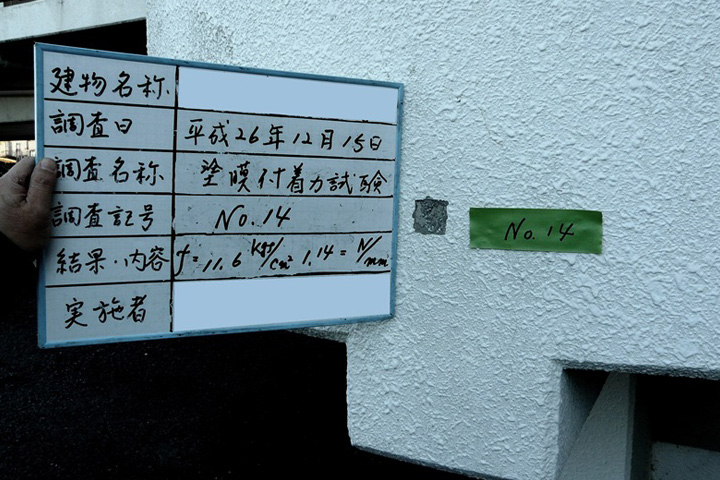 建物名称
調査日 平成26年12月15日
調査名称 塗膜付着力試験
調査記号 No.14
結果・内容 f=11.6 kgf/cm² 1.14=N/mm²
実施者
No.14